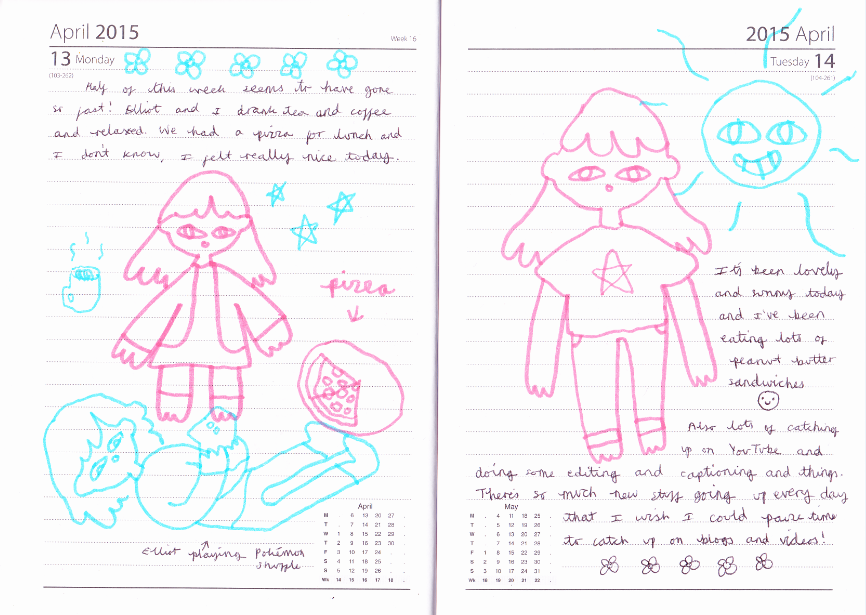 April 2015
Week 16
13 Monday
(103-262)
Half of this week seems to have gone
so fast! Elliot and I drank tea and coffee
and relaxed. We had a pizza for lunch and
I don't know, I felt really nice today.
pizza
Elliot playing Pokémon
Shuffle
April
M . 6 13 20 27 .
T . 7 14 21 28 .
W 1 8 15 22 29 .
T 2 9 16 23 30 .
F 3 10 17 24 . .
S 4 11 18 25 . .
S 5 12 19 26 . .
Wk 14 15 16 17 18 .
2015 April
Tuesday 14
(104-261)
It's been lovely
and sunny today
and I've been
eating lots of
peanut butter
sandwiches
Also lots of catching
up on YouTube and
doing some editing and captioning and things.
There's so much new stuff going up every day
that I wish I could pause time
to catch up on blogs and videos!
May
M . 4 11 18 25 .
T . 5 12 19 26 .
W . 6 13 20 27 .
T . 7 14 21 28 .
F 1 8 15 22 29 .
S 2 9 16 23 30 .
S 3 10 17 24 31 .
Wk 18 19 20 21 22 .